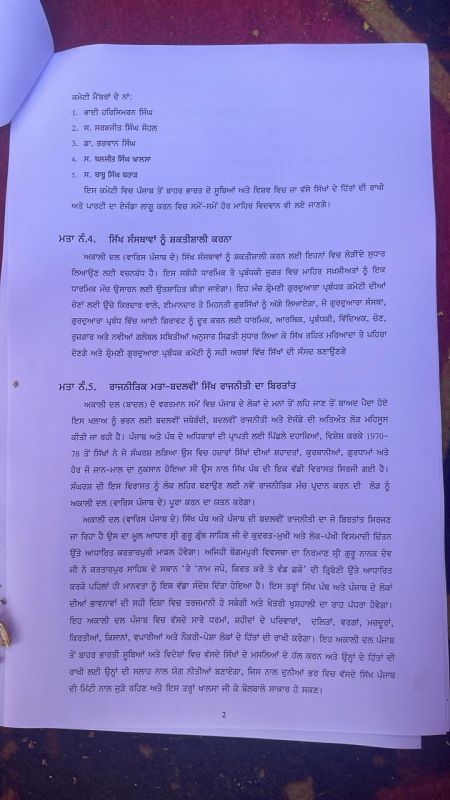 ਕਮੇਟੀ ਮੈਂਬਰਾਂ ਦੇ ਨਾਂ:
1. ਭਾਈ ਹਰਿਸਿਮਰਨ ਸਿੰਘ
2. ਸ. ਸਰਬਜੀਤ ਸਿੰਘ ਸੋਹਲ
3. ਡਾ. ਭਗਵਾਨ ਸਿੰਘ
4. ਸ. ਬਲਜੀਤ ਸਿੰਘ ਖਾਲਸਾ
5. ਸ. ਬਾਬੂ ਸਿੰਘ ਬਰਾੜ
ਇਸ ਕਮੇਟੀ ਵਿਚ ਪੰਜਾਬ ਤੋਂ ਬਾਹਰ ਭਾਰਤ ਦੇ ਸੂਬਿਆਂ ਅਤੇ ਵਿਸ਼ਵ ਵਿਚ ਜਾ ਵੱਸੇ ਸਿੱਖਾਂ ਦੇ ਹਿੱਤਾਂ ਦੀ ਰਾਖੀ
ਅਤੇ ਪਾਰਟੀ ਦਾ ਏਜੰਡਾ ਲਾਗੂ ਕਰਨ ਵਿਚ ਸਮੇਂ-ਸਮੇਂ ਹੋਰ ਮਾਹਿਰ ਵਿਦਵਾਨ ਵੀ ਲਏ ਜਾਣਗੇ।
ਮਤਾ ਨੰ.4. ਸਿੱਖ ਸੰਸਥਾਵਾਂ ਨੂੰ ਸ਼ਕਤੀਸ਼ਾਲੀ ਕਰਨਾ
ਅਕਾਲੀ ਦਲ (ਵਾਰਿਸ ਪੰਜਾਬ ਦੇ) ਸਿੱਖ ਸੰਸਥਾਵਾਂ ਨੂੰ ਸ਼ਕਤੀਸ਼ਾਲੀ ਕਰਨ ਲਈ ਇਹਨਾਂ ਵਿਚ ਲੋੜੀਂਦੇ ਸੁਧਾਰ
ਲਿਆਉਣ ਲਈ ਵਚਨਬੱਧ ਹੈ। ਇਸ ਸਬੰਧੀ ਧਾਰਮਿਕ ਤੇ ਪ੍ਰਬੰਧਕੀ ਜੁਗਤ ਵਿਚ ਮਾਹਿਰ ਸਖ਼ਸ਼ੀਅਤਾਂ ਨੂੰ ਇਕ
ਧਾਰਮਿਕ ਮੰਚ ਉਸਾਰਨ ਲਈ ਉਤਸ਼ਾਹਿਤ ਕੀਤਾ ਜਾਏਗਾ। ਇਹ ਮੰਚ ਸ਼੍ਰੋਮਣੀ ਗੁਰਦੁਆਰਾ ਪ੍ਰਬੰਧਕ ਕਮੇਟੀ ਦੀਆਂ
ਚੋਣਾਂ ਲਈ ਉਚੇ ਕਿਰਦਾਰ ਵਾਲੇ, ਈਮਾਨਦਾਰ ਤੇ ਮਿਹਨਤੀ ਗੁਰਸਿੱਖਾਂ ਨੂੰ ਅੱਗੇ ਲਿਆਏਗਾ, ਜੋ ਗੁਰਦੁਆਰਾ ਸੰਸਥਾ,
ਗੁਰਦੁਆਰਾ ਪ੍ਰਬੰਧ ਵਿੱਚ ਆਈ ਗਿਰਾਵਟ ਨੂੰ ਦੂਰ ਕਰਨ ਲਈ ਧਾਰਮਿਕ, ਆਰਥਿਕ, ਪ੍ਰਬੰਧਕੀ, ਵਿੱਦਿਅਕ, ਚੋਣ,
ਰੁਜ਼ਗਾਰ ਅਤੇ ਨਵੀਆਂ ਗਲੋਬਲ ਸਥਿਤੀਆਂ ਅਨੁਸਾਰ ਸਿਫ਼ਤੀ ਸੁਧਾਰ ਲਿਆ ਕੇ ਸਿੱਖ ਰਹਿਤ ਮਰਿਆਦਾ ਤੇ ਪਹਿਰਾ
ਦੇਣਗੇ ਅਤੇ ਸ਼੍ਰੋਮਣੀ ਗੁਰਦੁਆਰਾ ਪ੍ਰਬੰਧਕ ਕਮੇਟੀ ਨੂੰ ਸਹੀ ਅਰਥਾਂ ਵਿੱਚ ਸਿੱਖਾਂ ਦੀ ਸੰਸਦ ਬਣਾਉਣਗੇ
ਮਤਾ ਨੰ.5. ਰਾਜਨੀਤਿਕ ਮਤਾ-ਬਦਲਵੀਂ ਸਿੱਖ ਰਾਜਨੀਤੀ ਦਾ ਬਿਰਤਾਂਤ
ਅਕਾਲੀ ਦਲ (ਬਾਦਲ) ਦੇ ਵਰਤਮਾਨ ਸਮੇਂ ਵਿਚ ਪੰਜਾਬ ਦੇ ਲੋਕਾਂ ਦੇ ਮਨਾਂ ਤੋਂ ਲਹਿ ਜਾਣ ਤੋਂ ਬਾਅਦ ਪੈਦਾ ਹੋਏ
ਇਸ ਖਲਾਅ ਨੂੰ ਭਰਨ ਲਈ ਬਦਲਵੀਂ ਜਥੇਬੰਦੀ, ਬਦਲਵੀਂ ਰਾਜਨੀਤੀ ਅਤੇ ਏਜੰਡੇ ਦੀ ਅਤਿਅੰਤ ਲੋੜ ਮਹਿਸੂਸ
ਕੀਤੀ ਜਾ ਰਹੀ ਹੈ। ਪੰਜਾਬ ਅਤੇ ਪੰਥ ਦੇ ਅਧਿਕਾਰਾਂ ਦੀ ਪ੍ਰਾਪਤੀ ਲਈ ਪਿੱਛਲੇ ਦਹਾਕਿਆਂ, ਵਿਸ਼ੇਸ਼ ਕਰਕੇ 1970-
78 ਤੋਂ ਸਿੱਖਾਂ ਨੇ ਜੋ ਸੰਘਰਸ਼ ਲੜਿਆ ਉਸ ਵਿਚ ਹਜ਼ਾਰਾਂ ਸਿੱਖਾਂ ਦੀਆਂ ਸ਼ਹਾਦਤਾਂ, ਕੁਰਬਾਨੀਆਂ, ਗੁਰਧਾਮਾਂ ਅਤੇ
ਹੋਰ ਜੋ ਜਾਨ-ਮਾਲ ਦਾ ਨੁਕਸਾਨ ਹੋਇਆ ਸੀ ਉਸ ਨਾਲ ਸਿੱਖ ਪੰਥ ਦੀ ਇਕ ਵੱਡੀ ਵਿਰਾਸਤ ਸਿਰਜੀ ਗਈ ਹੈ।
ਸੰਘਰਸ਼ ਦੀ ਇਸ ਵਿਰਾਸਤ ਨੂੰ ਲੋਕ ਲਹਿਰ ਬਣਾਉਣ ਲਈ ਨਵੇਂ ਰਾਜਨੀਤਿਕ ਮੰਚ ਪ੍ਰਦਾਨ ਕਰਨ ਦੀ ਲੋੜ ਨੂੰ
ਅਕਾਲੀ ਦਲ (ਵਾਰਿਸ ਪੰਜਾਬ ਦੇ) ਪੂਰਾ ਕਰਨ ਦਾ ਯਤਨ ਕਰੇਗਾ।
ਅਕਾਲੀ ਦਲ (ਵਾਰਿਸ ਪੰਜਾਬ ਦੇ) ਸਿੱਖ ਪੰਥ ਅਤੇ ਪੰਜਾਬ ਦੀ ਬਦਲਵੀਂ ਰਾਜਨੀਤੀ ਦਾ ਜੋ ਬਿਰਤਾਂਤ ਸਿਰਜਣ
ਜਾ ਰਿਹਾ ਹੈ ਉਸ ਦਾ ਮੂਲ ਆਧਾਰ ਸ੍ਰੀ ਗੁਰੂ ਗ੍ਰੰਥ ਸਾਹਿਬ ਜੀ ਦੇ ਕੁਦਰਤ-ਮੁਖੀ ਅਤੇ ਲੋਕ-ਪੱਖੀ ਵਿਸਮਾਦੀ ਚਿੰਤਨ
ਉਤੇ ਆਧਾਰਿਤ ਕਰਤਾਰਪੁਰੀ ਮਾਡਲ ਹੋਵੇਗਾ। ਅਜਿਹੀ ਬੇਗਮਪੁਰੀ ਵਿਵਸਥਾ ਦਾ ਨਿਰਮਾਣ ਸ੍ਰੀ ਗੁਰੂ ਨਾਨਕ ਦੇਵ
ਜੀ ਨੇ ਕਰਤਾਰਪੁਰ ਸਾਹਿਬ ਦੇ ਸਥਾਨ 'ਤੇ 'ਨਾਮ ਜਪੋ, ਕਿਰਤ ਕਰੋ ਤੇ ਵੰਡ ਛਕੋ' ਦੀ ਤ੍ਰਿਬੇਣੀ ਉਤੇ ਆਧਾਰਿਤ
ਕਰਕੇ ਪਹਿਲਾਂ ਹੀ ਮਾਨਵਤਾ ਨੂੰ ਇਕ ਵੱਡਾ ਸੰਦੇਸ਼ ਦਿੱਤਾ ਹੋਇਆ ਹੈ। ਇਸ ਤਰ੍ਹਾਂ ਸਿੱਖ ਪੰਥ ਅਤੇ ਪੰਜਾਬ ਦੇ ਲੋਕਾਂ
ਦੀਆਂ ਭਾਵਨਾਵਾਂ ਦੀ ਸਹੀ ਦਿਸ਼ਾ ਵਿਚ ਤਰਜਮਾਨੀ ਹੋ ਸਕੇਗੀ ਅਤੇ ਖੇਤਰੀ ਖੁਸ਼ਹਾਲੀ ਦਾ ਰਾਹ ਪੱਧਰਾ ਹੋਵੇਗਾ।
ਇਹ ਅਕਾਲੀ ਦਲ ਪੰਜਾਬ ਵਿਚ ਵੱਸਦੇ ਸਾਰੇ ਧਰਮਾਂ, ਸ਼ਹੀਦਾਂ ਦੇ ਪਰਿਵਾਰਾਂ, ਦਲਿਤਾਂ, ਵਰਗਾਂ, ਮਜ਼ਦੂਰਾਂ,
ਕਿਰਤੀਆਂ, ਕਿਸਾਨਾਂ, ਵਪਾਰੀਆਂ ਅਤੇ ਨੌਕਰੀ-ਪੇਸ਼ਾ ਲੋਕਾਂ ਦੇ ਹਿੱਤਾਂ ਦੀ ਰਾਖੀ ਕਰੇਗਾ। ਇਹ ਅਕਾਲੀ ਦਲ ਪੰਜਾਬ
ਤੋਂ ਬਾਹਰ ਭਾਰਤੀ ਸੂਬਿਆਂ ਅਤੇ ਵਿਦੇਸ਼ਾਂ ਵਿਚ ਵੱਸਦੇ ਸਿੱਖਾਂ ਦੇ ਮਸਲਿਆਂ ਦੇ ਹੱਲ ਕਰਨ ਅਤੇ ਉਨ੍ਹਾਂ ਦੇ ਹਿੱਤਾਂ ਦੀ
ਰਾਖੀ ਲਈ ਉਨ੍ਹਾਂ ਦੀ ਸਲਾਹ ਨਾਲ ਯੋਗ ਨੀਤੀਆਂ ਬਣਾਏਗਾ, ਜਿਸ ਨਾਲ ਦੁਨੀਆਂ ਭਰ ਵਿਚ ਵੱਸਦੇ ਸਿੱਖ ਪੰਜਾਬ
ਦੀ ਮਿੱਟੀ ਨਾਲ ਜੁੜੇ ਰਹਿਣ ਅਤੇ ਇਸ ਤਰ੍ਹਾਂ ਖਾਲਸਾ ਜੀ ਕੇ ਬੋਲਬਾਲੇ ਸਾਕਾਰ ਹੋ ਸਕਣ।
2